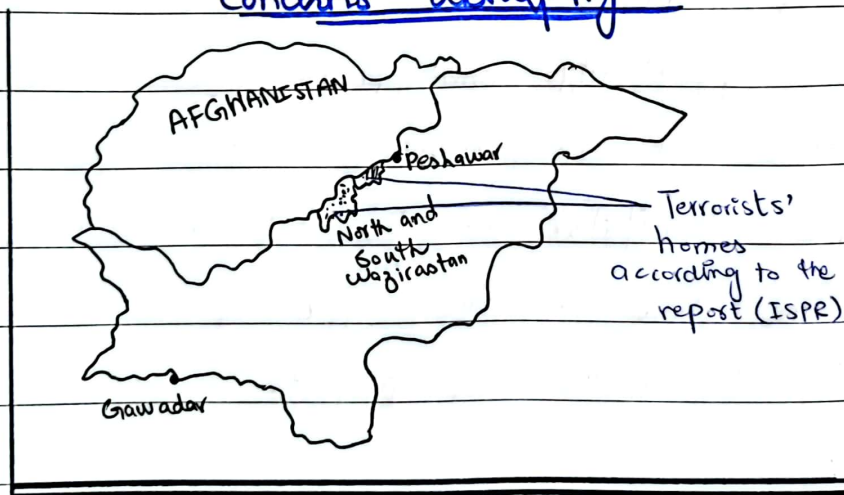 AFGHANISTAN
Peshawar
North and
South
Wazirastan
Terrorists'
homes
according to the
report (ISPR)
Gawadar